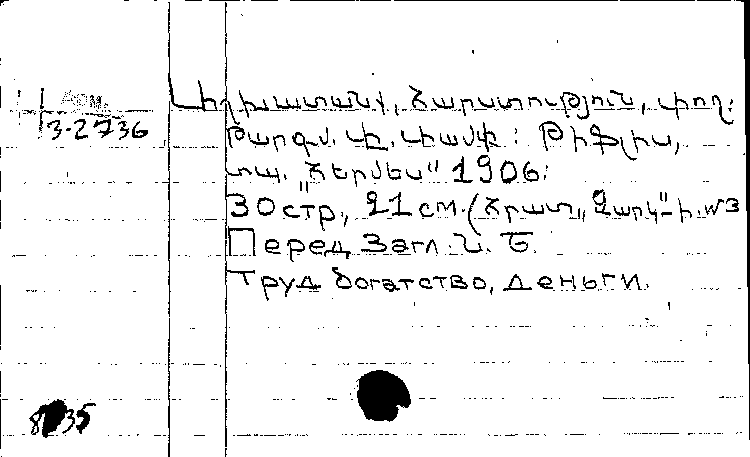 Арм.
3-2736
Աշխատանք, Հարստություն, փող:
Թարգմ. Թիֆլիս,
տպ. „Հերմես" 1906:
30 стр, 21 см. (Հրատ. „Զարկ"-ի. №3
Перед Загл. Ն. Տ.
Труд богатство, деньги.